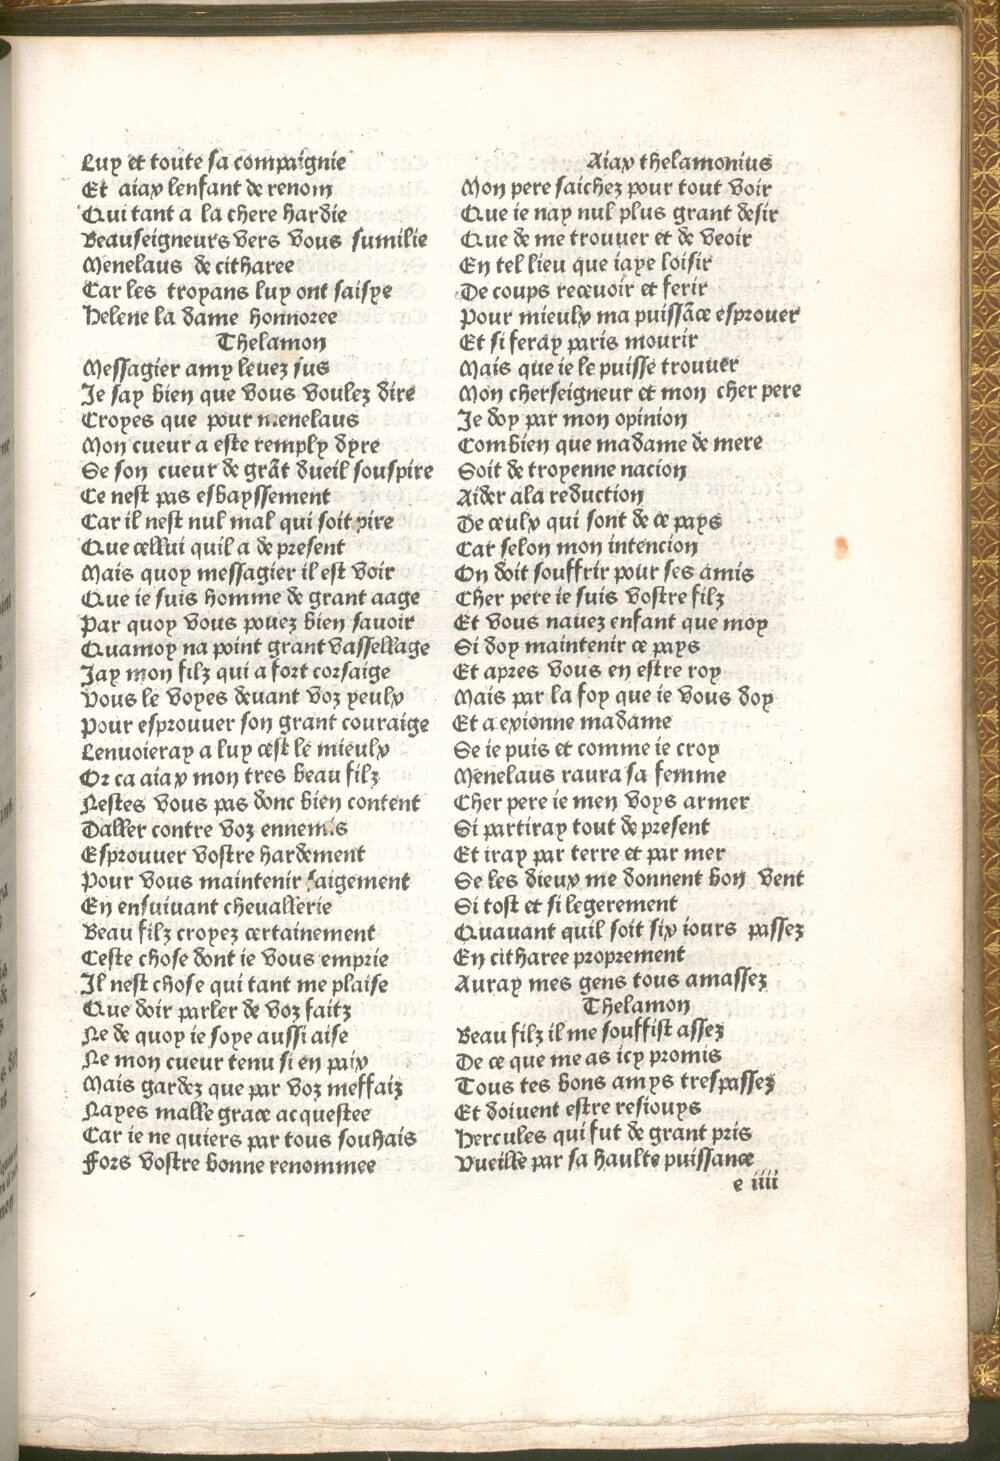 Luy et toute sa compaignie
Et aiax lenfant de renom
Qui tant a la chere hardie
Beauseigneurs vers vous sumilie
Menelaus de citharee
Car les troyans luy ont saisye
Helene la dame honnoree
Thelamon
Messagier amy leuez sus
Je say bien que vous voulez dire
Croyes que pour menelaus
Mon cueur a este remply dyre
Se son cueur de grãt dueil souspire
Ce nest pas esbayssement
Car il nest nul mal qui soit pire
Que cellui quil a de present
Mais quoy messagier il est voir
Que ie suis homme de grant aage
Par quoy vous pouez bien sauoir
Quamoy na point grant vassellage
Jay mon filz qui a fort corsaige
Vous le voyes deuant voz yeulx
Pour esprouuer son grant couraige
Lenuoieray a luy cest le mieulx
Or ca aiax mon tres beau filz
Nestes vous pas donc bien content
Daller contre voz ennemis
Esprouuer vostre hardement
Pour vous maintenir saigement
En ensuiuant cheuallerie
Beau filz croyez certainement
Ceste chose dont ie vous emprie
Il nest chose qui tant me plaise
Que doir parler de voz faitz
Ne de quoy ie soye aussi aise
Ne mon cueur tenu si en paix
Mais gardez que par voz meffaiz
Nayes malle grace acquestee
Car ie ne quiers par tous souhais
Fors vostre bonne renommee
Aiax thelamonius
Mon pere saichez pour tout voir
Que ie nay nul plus grant desir
Que de me trouuer et de veoir
En tel lieu que iaye loisir
De coups receuoir et ferir
Pour mieulx ma puissãce esprouer
Et si feray paris mourir
Mais que ie le puisse trouuer
Mon cherseigneur et mon cher pere
Je doy par mon opinion
Combien que madame de mere
Soit de troyenne nacion
Aider ala reduction
De ceulx qui sont de ce pays
Cat selon mon intencion
On doit souffrir pour ses amis
Cher pere ie suis vostre filz
Et vous nauez enfant que moy
Si doy maintenir ce pays
Et apres vous en estre roy
Mais par la foy que ie vous doy
Et a exionne madame
Se ie puis et comme ie croy
Menelaus raura sa femme
Cher pere ie men voys armer
Si partiray tout de present
Et iray par terre et par mer
Se les dieux me donnent bon vent
Si tost et si legerement
Quauant quil soit six iours passez
En citharee proprement
Auray mes gens tous amassez
Thelamon
Beau filz il me souffist assez
De ce que me as icy promis
Tous tes bons amys trespassez
Et doiuent estre resiouys
Hercules qui fut de grant pris
Vueille par sa haulte puissance
e iiii